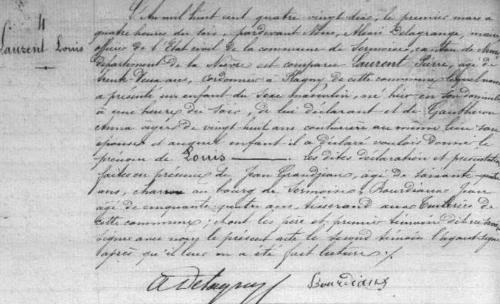 4
Laurent Louis
L'An mil huit cent quatre vingt dix, le premier mars a
quatre heures du soir, pardevant Nous, Alexis Delagrange, maire
officier de l'Etat civil de la commune de Sermoise, canton de
département de la Nièvre est comparu Laurent Pierre, agé de
trente deux ans, cordonnier à Plagny de cette commune lequel nous
a présenté un enfant du sexe masculin, né hier en son domicile
à une heure du soir, de lui déclarant et de Gautheron
Anna agée de vingt huit ans couturière au même lieu son
épouse et auquel enfant il a déclaré vouloir donner le
prénom de Louis les dites déclaration et présentation
faites en présence de Jean Grandjean, agé de soixante
ans, charron au bourg de Sermoise, Bourdiaux Jean
agé de cinquante quatre ans tisserand aux
cette commune; dont les père et premier témoin déclaré ne
signer avec nous le présent acte le second témoin l'ayant signé
après qu'il leur en a été fait lecture.
A Delagrange Bourdiaux